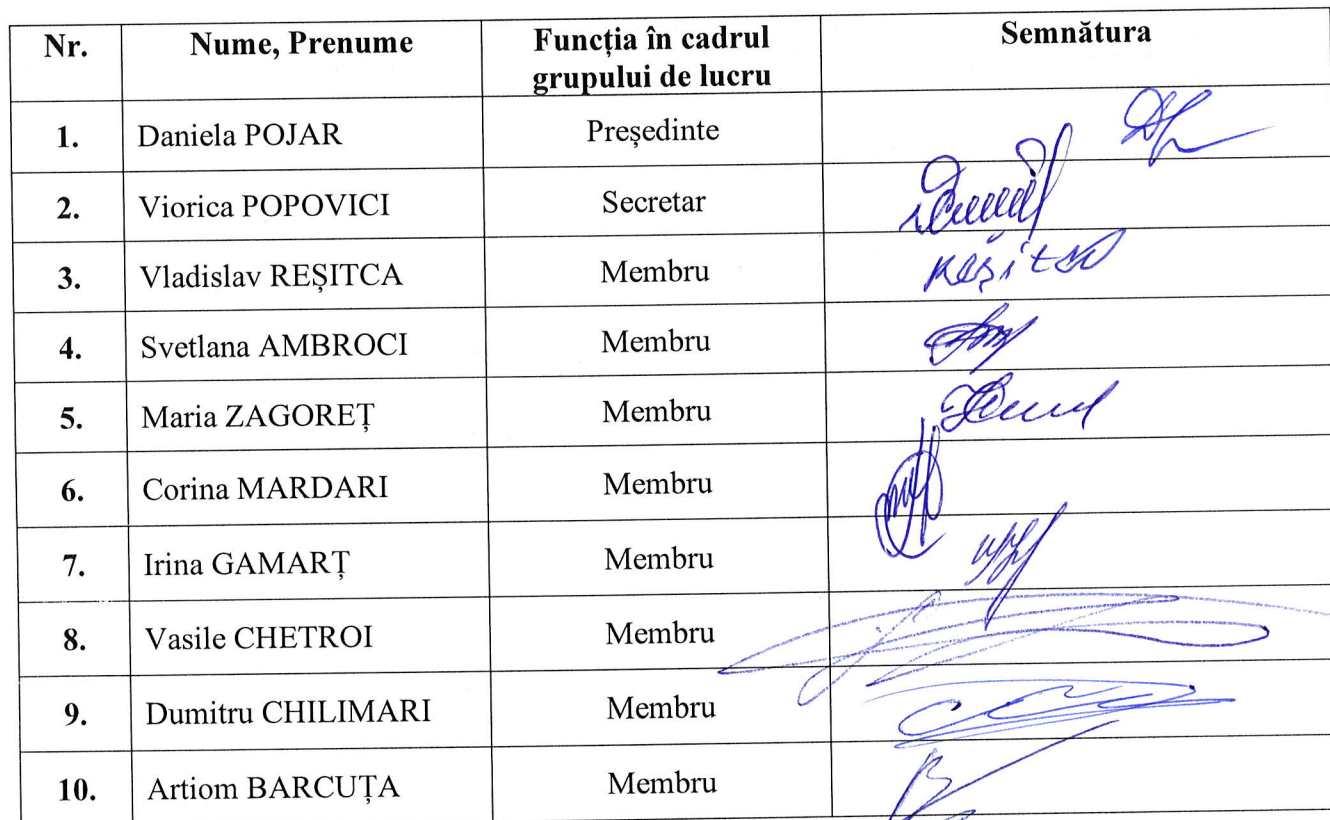 Nr. Nume, Prenume Funcția în cadrul Semnătura
grupului de lucru
1. Daniela POJAR Președinte
2. Viorica POPOVICI Secretar
3. Vladislav REȘITCA Membru
4. Svetlana AMBROCI Membru
5. Maria ZAGOREȚ Membru
6. Corina MARDARI Membru
7. Irina GAMARȚ Membru
8. Vasile CHETROI Membru
9. Dumitru CHILIMARI Membru
10. Artiom BARCUȚA Membru